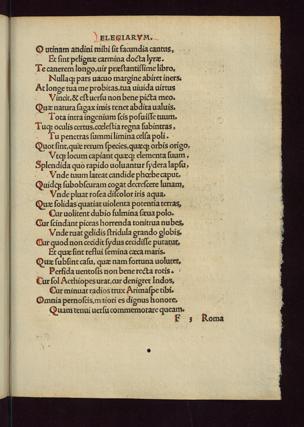 ELEGIARVM.
O utinam andini mihi sit facundia cantus,
Et sint pelignæ carmina docta lyræ.
Te canerem longo, uir præstantissime libro,
Nullaq; pars uacuo margine abiret iners.
At longe tua me probitas, tua uiuida uirtus
Vincit, & est uersu non bene picta meo.
Quæ natura sagax imis tenet abdita uallis,
Tota intra ingenium scis posuisse tuum.
Tuq; oculis certus, cœlestia regna subintras,
Tu penetras summi limina celsa poli.
Quot sint, quæ rerum species, quæq; orbis origo,
Vtq; locum capiant quæq; elementa suum,
Splendida quo rapido uoluantur sydera lapsu,
Vnde tuum lateat candide phœbe caput.
Quidq; subobscuram cogat decrescere lunam,
Vnde pluat rosea discolor iris aqua.
Quæ solidas quatiat uiolenta potentia terras,
Cur uolitent dubio fulmina sæua polo.
Cur scindant piceas horrenda tonitrua nubes,
Vnde ruat gelidis stridula grando globis.
Cur quod non cecidit sydus cecidisse putatur,
Et quæ sint rerum semina cæca maris.
Quæ subsint casu, quæ nam fortuna uoluter,
Perfida uentosis non bene recta rotis.
Cur sol Aethiopes urat, cur denigret Indos,
Cur minuat radios trux Arimaspe tibi.
Omnia pernoscis, maiori es dignus honore,
Quam tenui uersu commemorare queam.
F 3 Roma